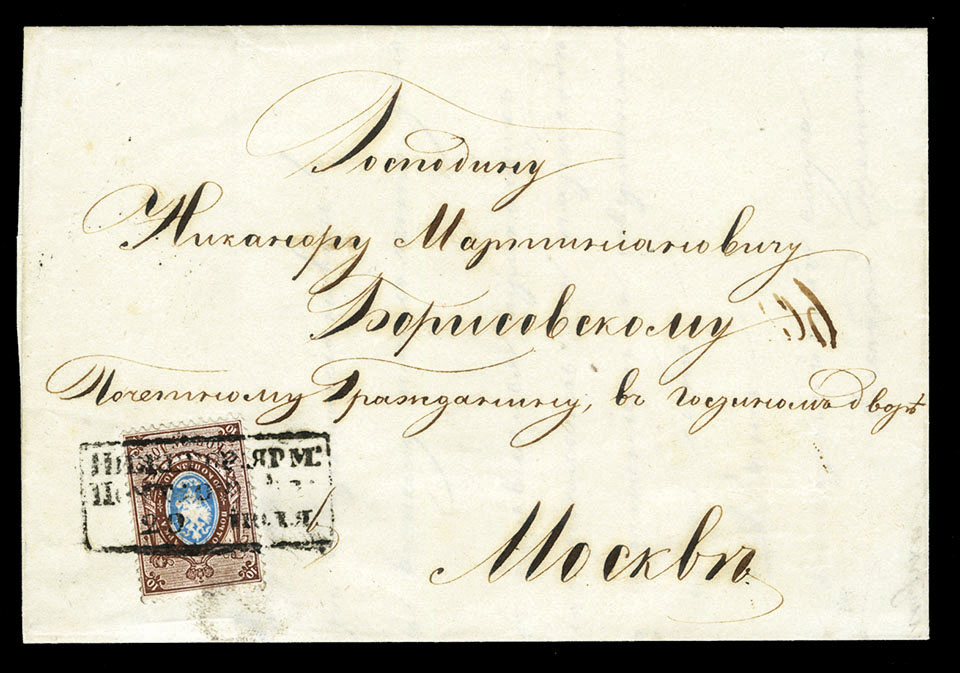 Господину
Никанору Мартиніановичу
Борисовскому
Почетному Гражданину, въ Гостиномъ дворѣ
Москвѣ
НИЖЕГОР. ЯРМ.
20 ІЮЛЯ
10